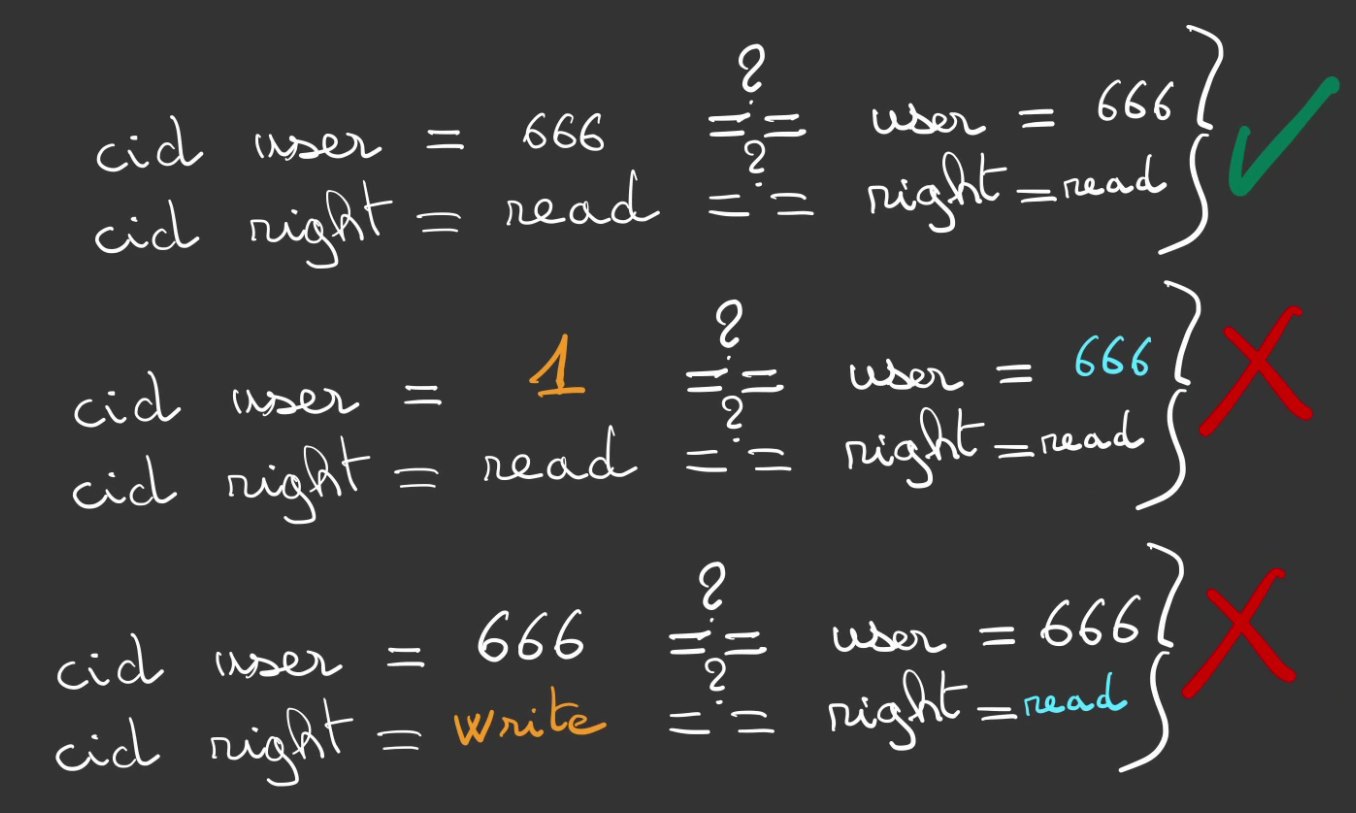 cid user = 666 =?= user = 666
cid right = read =?= right = read
cid user = 1 =?= user = 666
cid right = read =?= right = read
cid user = 666 =?= user = 666
cid right = write =?= right = read